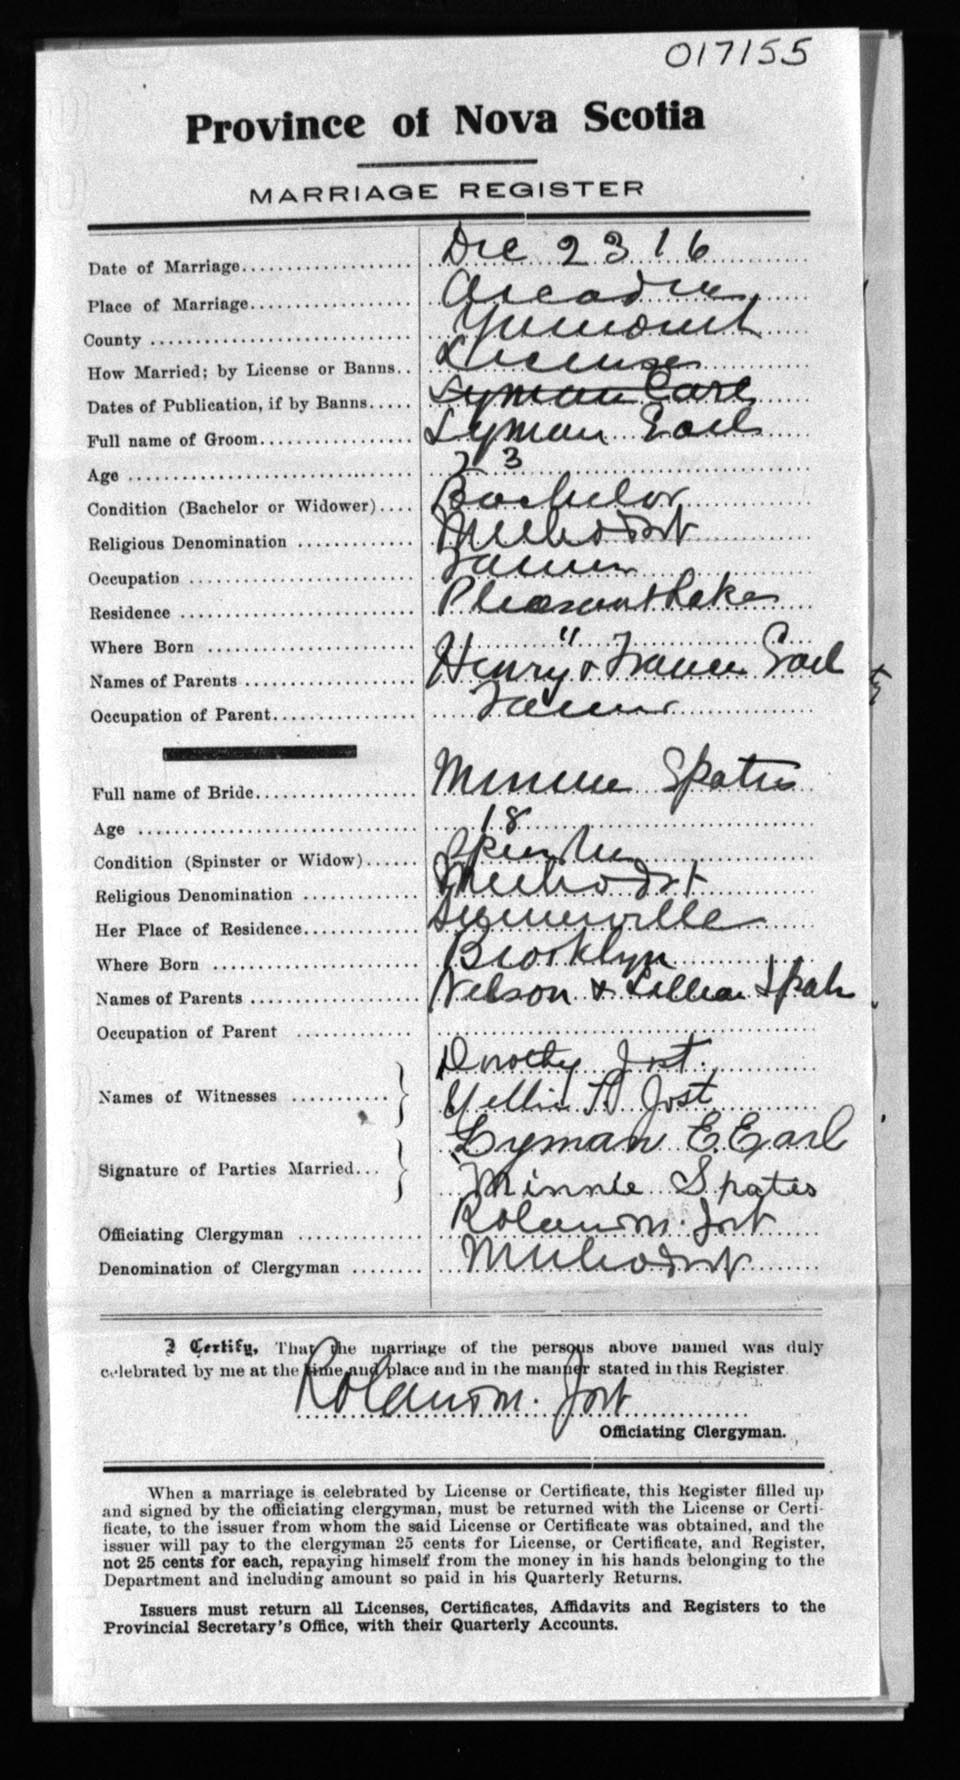 017155
Province of Nova Scotia
MARRIAGE REGISTER
Date of Marriage.................... Dec 23 16
Place of Marriage................... Arcadia
County .............................. Yarmouth
How Married; by License or Banns.. License
Dates of Publication, if by Banns..... Lyman Earl
Full name of Groom................... Lyman Earl
Age ................................. 23
Condition (Bachelor or Widower).... Bachelor
Religious Denomination ............. Methodist
Occupation .......................... Farmer
Residence ........................... Pleasant Lake
Where Born .......................... "
Names of Parents .................... Henry & Earl
Occupation of Parent................. Farmer
Full name of Bride................... Minnie Spates
Age ................................. 18
Condition (Spinster or Widow)...... Spinster
Religious Denomination ............. Methodist
Her Place of Residence.............
Where Born ......................... Brooklyn
Names of Parents ................... Nelson & Lillian
Occupation of Parent ...............
Names of Witnesses ........... } Dorothy Jost
Jost
Signature of Parties Married... } Lyman E. Earl
Minnie Spates
Officiating Clergyman ............. Roland M. Jost
Denomination of Clergyman ........ Methodist
I Certify, That the marriage of the persons above named was duly
celebrated by me at the time and place and in the manner stated in this Register
Roland M. Jost
Officiating Clergyman.
When a marriage is celebrated by License or Certificate, this Register filled up
and signed by the officiating clergyman, must be returned with the License or Certi-
ficate, to the issuer from whom the said License or Certificate was obtained, and the
issuer will pay to the clergyman 25 cents for License, or Certificate, and Register,
not 25 cents for each, repaying himself from the money in his hands belonging to the
Department and including amount so paid in his Quarterly Returns.
Issuers must return all Licenses, Certificates, Affidavits and Registers to the
Provincial Secretary's Office, with their Quarterly Accounts.